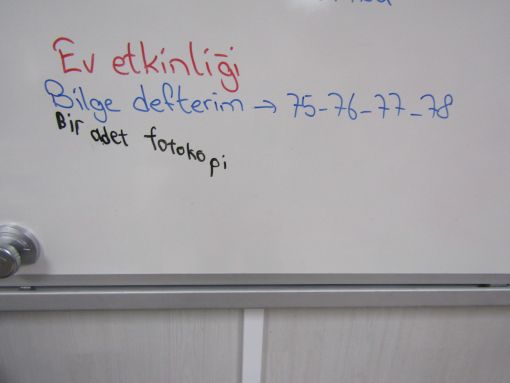 Ev etkinliği
Bilge defterim → 75-76-77-78
Bir adet fotokopi